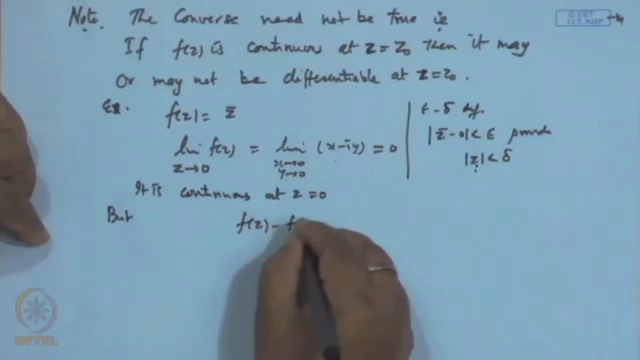 Note. The Converse need not be true ie
If f(z) is continuous at z=z₀ then it may
Or may not be differentiable at z=z₀.
Ex. f(z) = z̄
lim z→0 f(z) = lim x→0 y→0 (x-iy) = 0
ε-δ def.
|z̄-0|<ε provide
|z|<δ
It is continuous at z=0
But f(z) - f
© CET
I.I.T. KGP
NPTEL